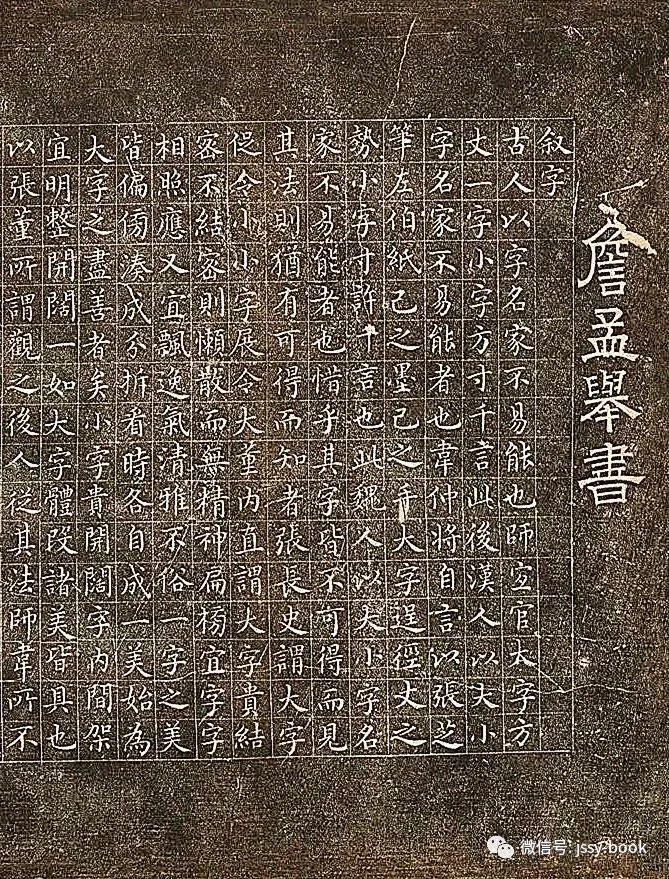 詹孟舉書
叙字
古人以字名家不易能也師宜官大字方
丈一字小字方寸千言此後漢人以大小
字名家不易能者也韋仲將自言以張芝
筆左伯紙己之墨己之手大字逞徑丈之
勢小字寸許千言也此魏人以大小字名
家不易能者也惜乎其字皆不可得而見
其法則猶有可得而知者張長史謂大字
促令小小字展令大董內直謂大字貴結
密不結密則懶散而無精神扁榜宜字字
相照應又宜飄逸氣清雅不俗一字之美
皆偏傍湊成分拆看時各自成一美始為
大字之盡善者矣小字貴開闊字內間架
宜明整開闊一如大字體段諸美皆具也
以張董所謂觀之後人從其法師韋所不
微信号: jssy-book